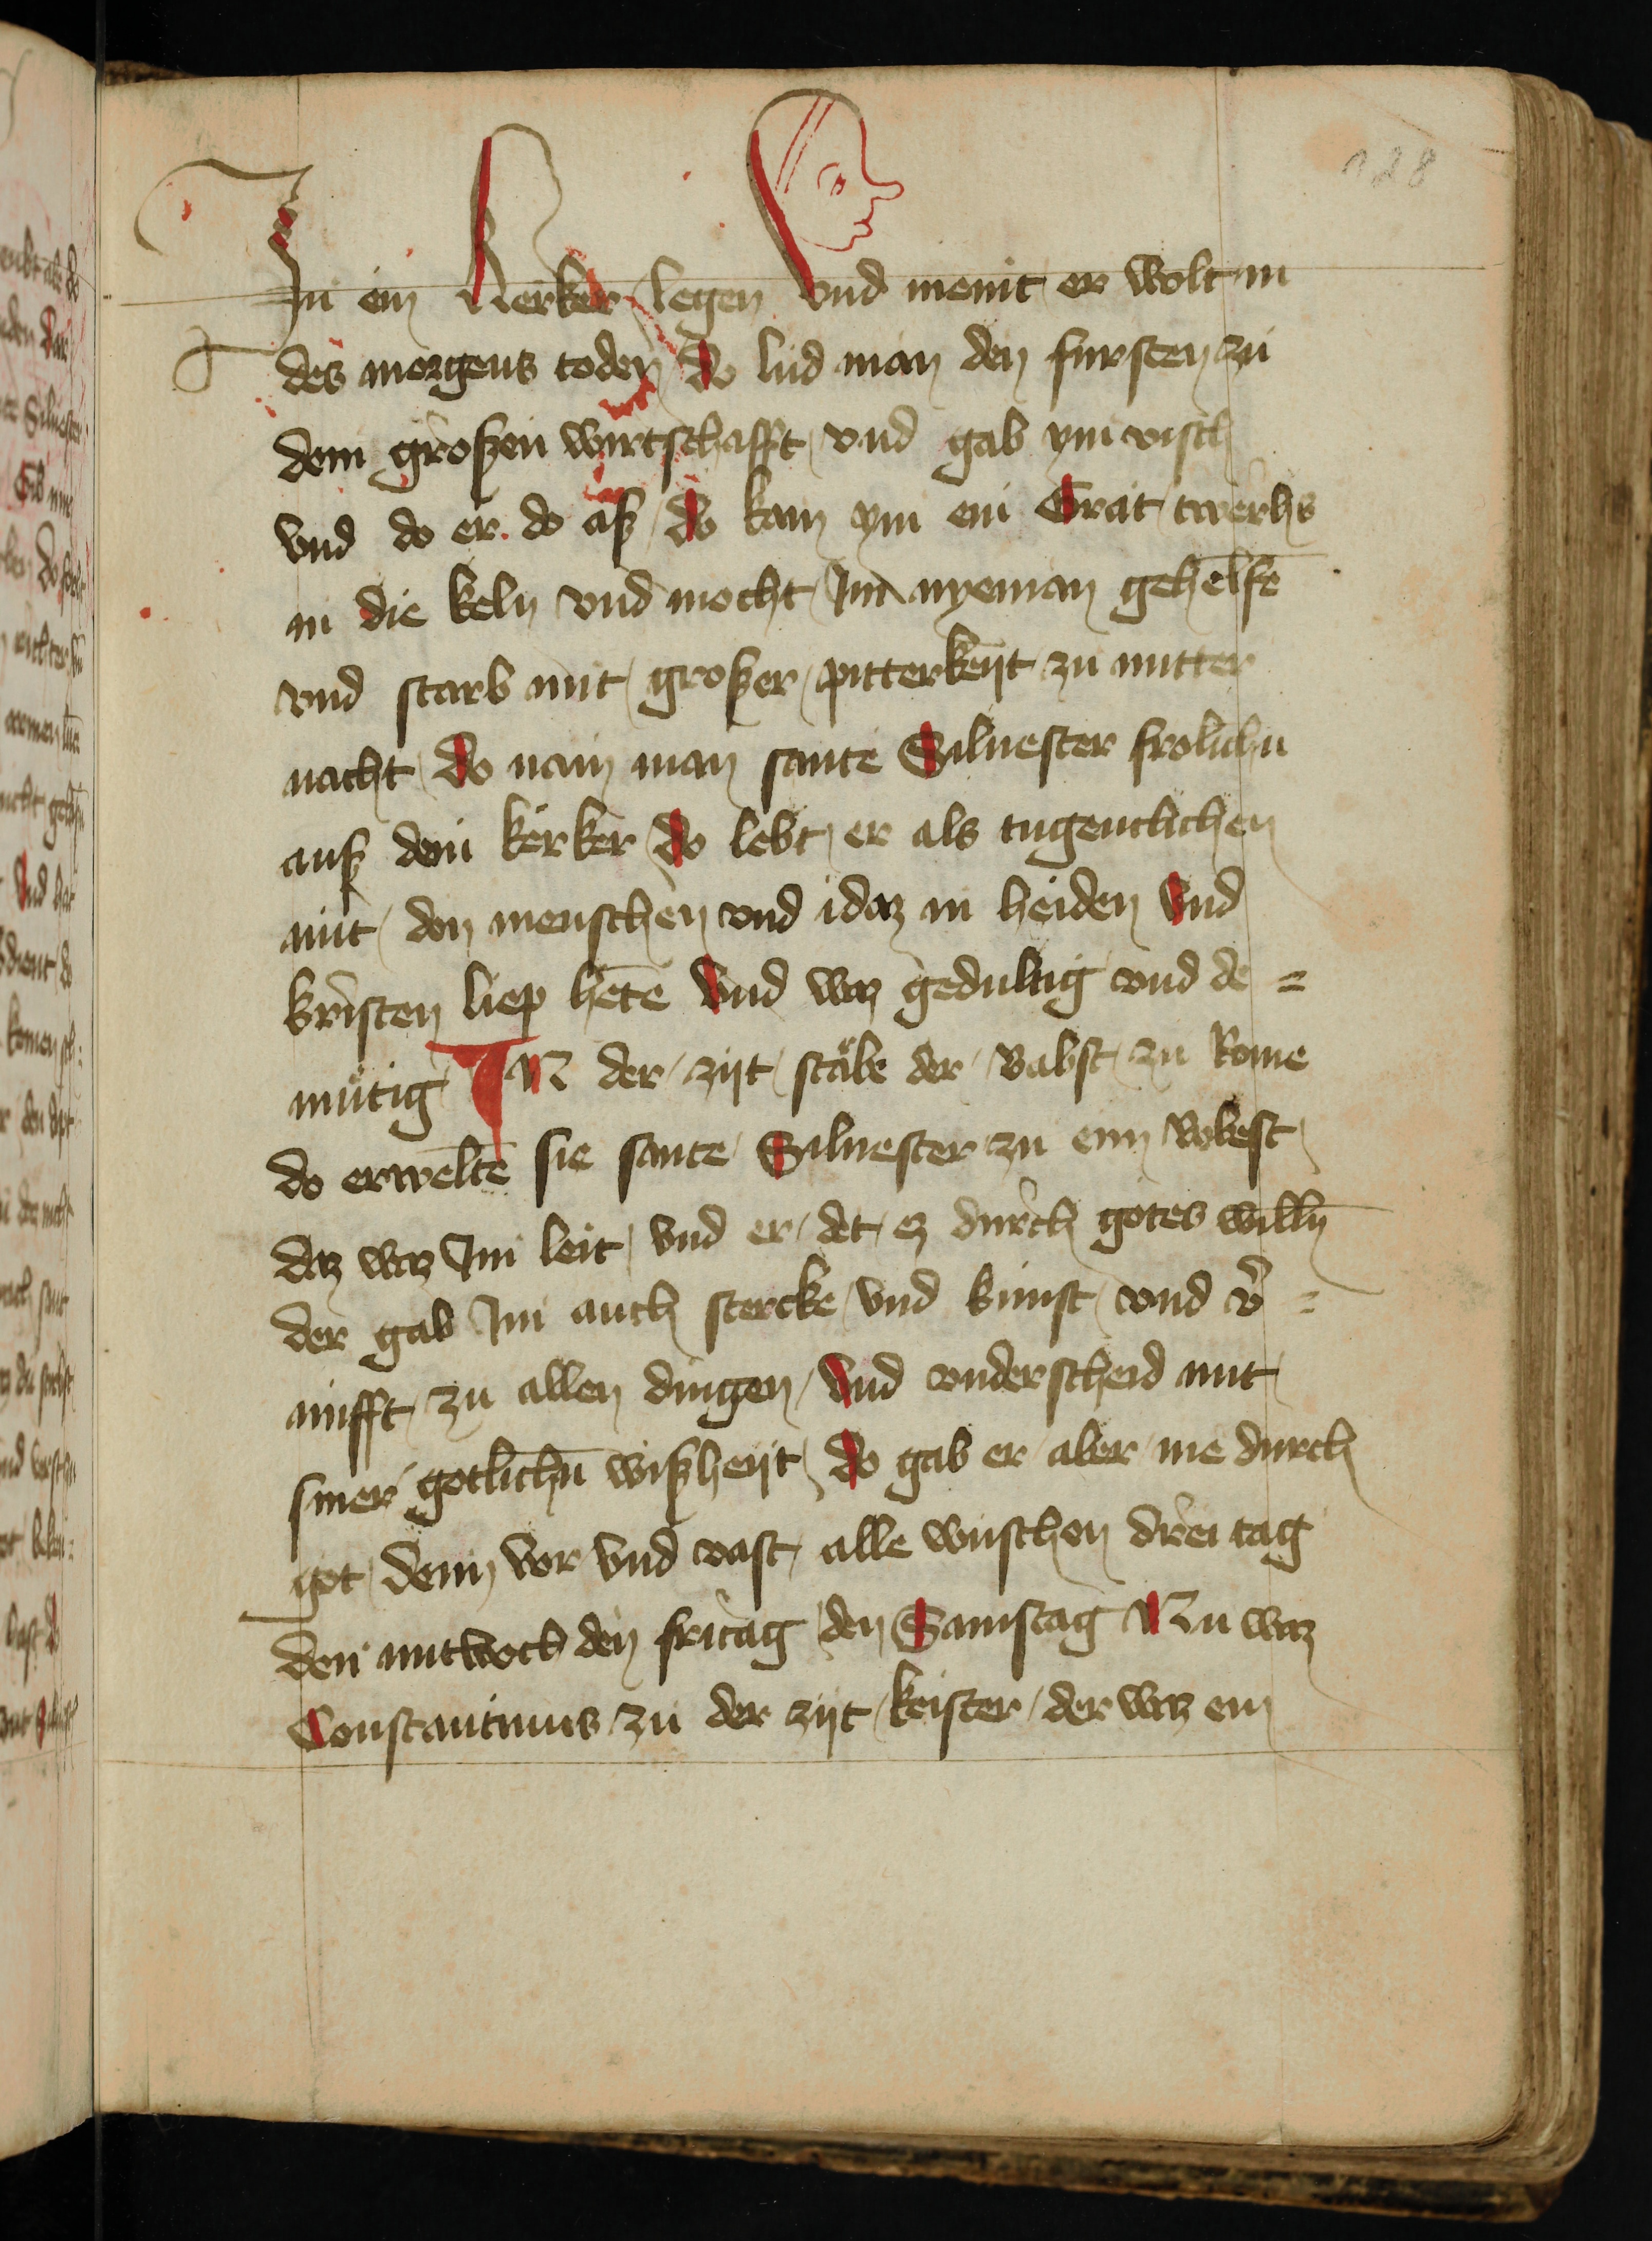 128
In ein Kerker legen vnd meint er wolt in
des morgens toden do lud man den fursten zu
dem großen wirtschafft vnd gab ym visch
vnd do er do aß do kam ym ein Grat twerhs
in die keln vnd mocht Im nyeman gehelfē
vnd starb mit großer pitterkeyt zu mitter
nacht do nam man sante Siluester frolichn
auß dem kerker do lebt er als tugentlichen
mit den menschen vnd idaz in heiden vnd
kristen liep hetē vnd waz gedultig vnd de=
mütig IN der zijt starbe der babst zu Rome
do erweltē sie sante Siluester zu eim bobest
daz waz Im leit vnd er det ez durch gotes willn̄
der gab Im auch stercke vnd kunst vnd v̉=
nufft zu allen dingen vnd vnderscheid mit
siner gotlichn̄ wißheijt do gab er aber me durch
got denn vor vnd vast alle wuschen drei tag
den mitwoch den fritag den Samstag Nu waz
Constantinus zu der zijt keister der waz ein